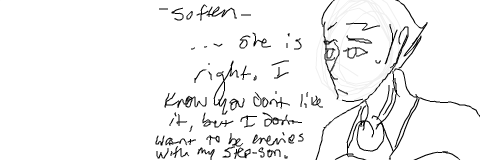 -soften-
... she is
right. I
know you don't like
it, but I don't
want to be enemies
with my step-son.